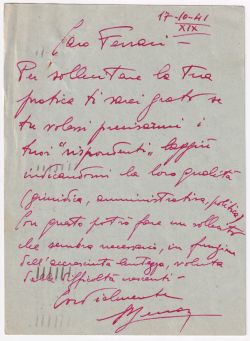 17-10-41
XIX
Caro Ferrari =
Per sollecitare la tua
pratica ti sarei grato se
tu volessi precisarmi i
tuoi "rispondenti" laggiù
indicandomi la loro qualità
(giuridica, amministrativa, politica)
Con questo potrò fare un sollecito
che sembra necessario, in funzione
dell'accresciuta lentezza, voluta
dalle difficoltà recenti -
Cordialmente